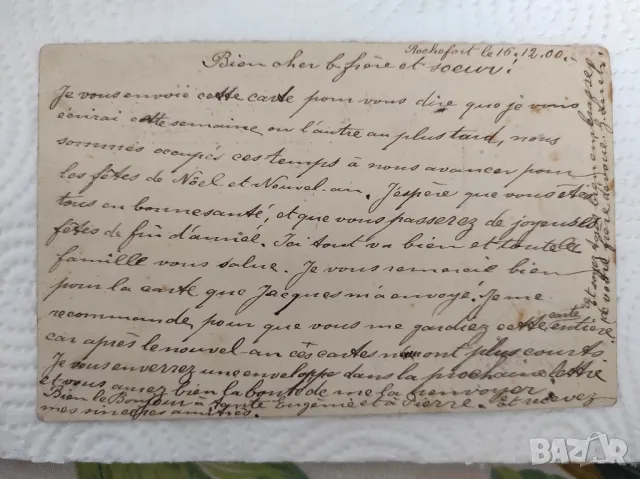 Rochefort le 16.12.00.
Bien cher b. frère et soeur!
Je vous envoie cette carte pour vous dire que je vous
écrirai cette semaine ou l'autre au plus tard, nous
sommes occupés ces temps à nous avancer pour
les fêtes de Noël et Nouvel-an. J'espère que vous êtes
tous en bonne santé, et que vous passerez de joyeuses
fêtes de fin d'année. Ici tout va bien et toute la
famille vous salue. Je vous remercie bien
pour la carte que Jacques m'a envoyé. Je me
recommande pour que vous me gardiez cette carte entière
car après le nouvel-an ces cartes n'ont plus cours
Je vous enverrez une enveloppe dans la prochaine lettre
et vous aurez bien la bonté de me la renvoyer.
Bien le Bonjour à tante Eugénie et à Pierre. Et recevez
mes sincères amitiés.
et soyez bien embrassés
de votre frère
BAZAR
.bg